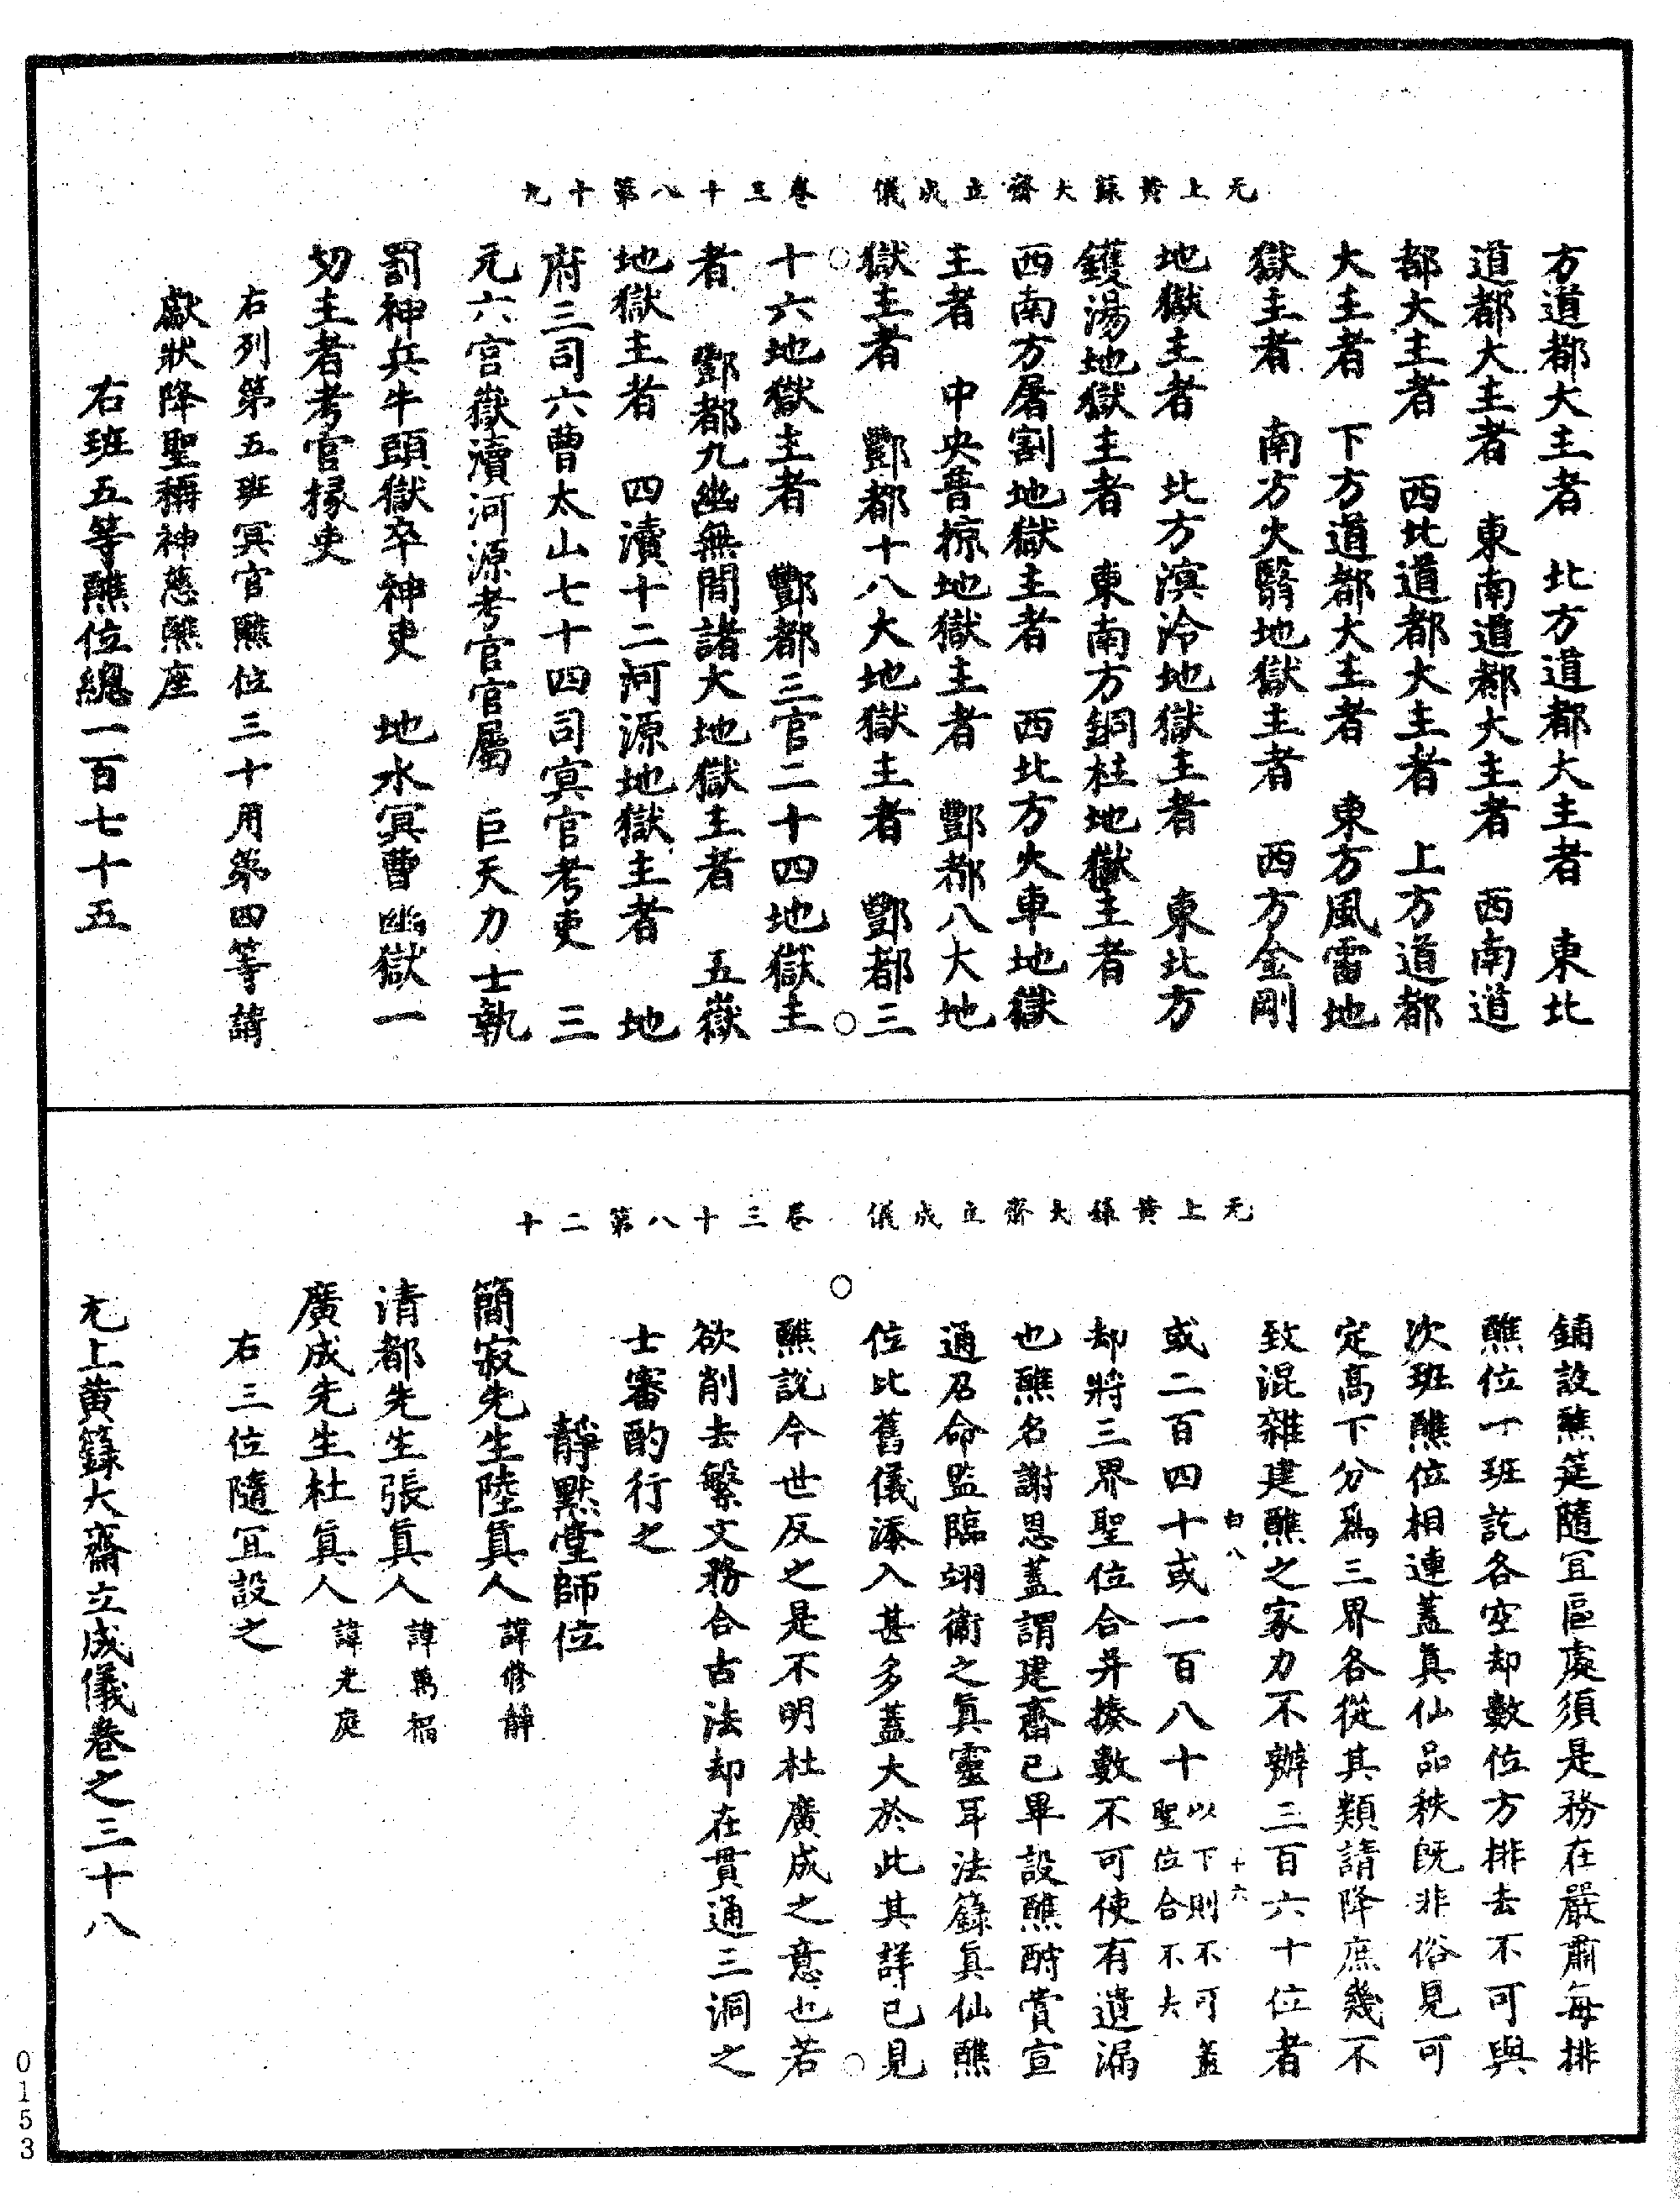 九十第八十三卷 儀成立齋大籙黃上无
方道都大主者 北方道都大主者 東北
道都大主者 東南道都大主者 西南道
都大主者 西北道都大主者 上方道都
大主者 下方道都大主者 東方風雷地
獄主者 南方火翳地獄主者 西方金剛
地獄主者 北方溟泠地獄主者 東北方
鑊湯地獄主者 東南方銅柱地獄主者
西南方屠割地獄主者 西北方火車地獄
主者 中央普掠地獄主者 酆都八大地
獄主者 酆都十八大地獄主者 酆都三
十六地獄主者 酆都三官二十四地獄主
者 酆都九幽無間諸大地獄主者 五嶽
地獄主者 四瀆十二河源地獄主者 地
府三司六曹太山七十四司冥官考吏 三
元六宮嶽瀆河源考官官屬 巨天力士執
罰神兵牛頭獄卒神吏 地水冥曹幽獄一
切主者考官掾吏
右列第五班冥官醮位三十用第四等請
獻狀降聖稱神慈醮座
右班五等醮位總一百七十五
十二第八十三卷 儀成立齋大籙黃上无
鋪設醮筵隨宜區處須是務在嚴肅每排
醮位一班訖各空却數位方排去不可與
次班醮位相連蓋真仙品秩既非俗見可
定高下分為三界各從其類請降庶幾不
致混雜建醮之家力不辦三百六十位者
白八 十六
或二百四十或一百八十以下則不可蓋聖位合不大
却將三界聖位合并揍數不可使有遺漏
也醮名謝恩蓋謂建齋已畢設醮酬賞宣
通召命監臨翊衛之真靈耳法籙真仙醮
位比舊儀添入甚多蓋大於此其詳已見
醮說今世反之是不明杜廣成之意也若
欲削去繁文務合古法却在貫通三洞之
士審酌行之
靜默堂師位
簡寂先生陸真人諱修靜
清都先生張真人諱萬福
廣成先生杜真人諱光庭
右三位隨宜設之
无上黃籙大齋立成儀卷之三十八
0153